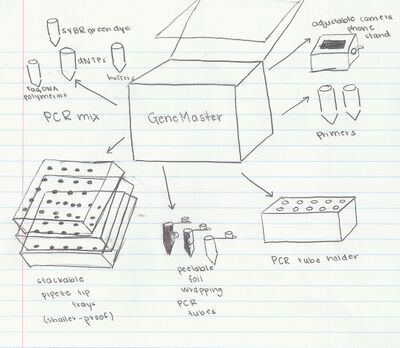 SYBR green dye
dNTPs
buffers
Taq DNA
polymerais
PCR mix
GeneMaster
adjustable camera
phone
stand
primers
stackable
pipette tip
trays
(shatter-proof)
peelable
foil
wrapping
PCR
tubes
PCR tube holder